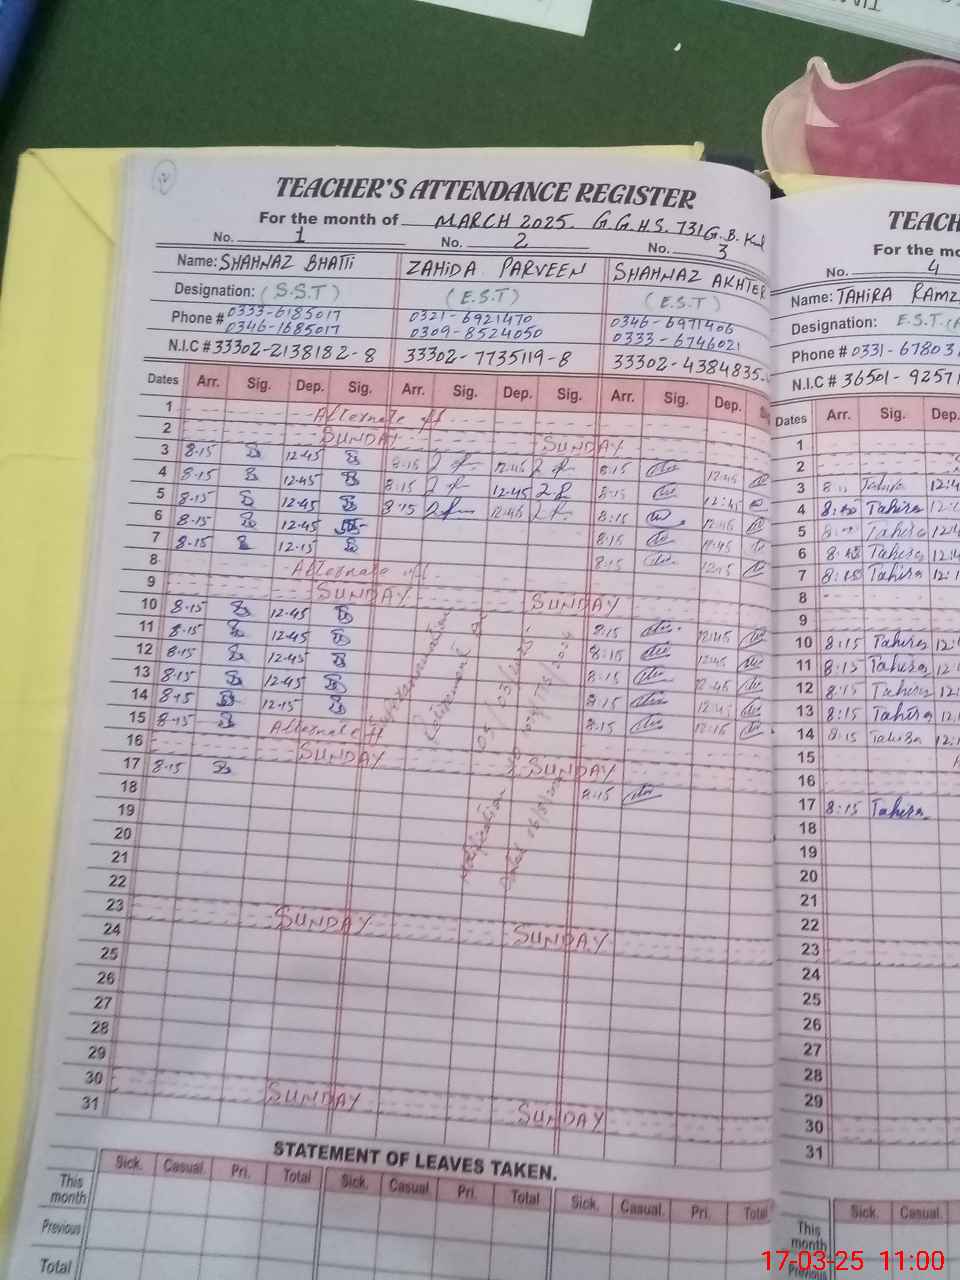 TEACHER'S ATTENDANCE REGISTER
For the month of MARCH 2025. G.G.H.S. 731 G.B.
No. 1 No. 2 No. 3
Name: SHAHNAZ BHATTI ZAHIDA PARVEEN SHAHNAZ AKHTER
Designation: (S.S.T) (E.S.T) (E.S.T)
Phone # 0333-6185017 0321-6921470 0346-6971406
0346-1685017 0309-8524050 0333-6746021
N.I.C # 33302-2138182-8 33302-7735119-8 33302-4384835-
Dates Arr. Sig. Dep. Sig. Arr. Sig. Dep. Sig. Arr. Sig. Dep.
1 Alternate off
2 SUNDAY SUNDAY
3 8-15 12-45 8:15 12:45 8:15 12:45
4 8-15 12-45 8:15 12-45 8:15 12:45
5 8-15 12-45 8-15 12:45 8:15 12:45
6 8-15 12-45 8:15 12:45
7 8-15 12-15 8:15 12:15
8 Alternate off
9 SUNDAY SUNDAY
10 8-15 12-45 8:15 12:45
11 8-15 12-45 8:15 12:45
12 8-15 12-45 8:15 12:45
13 8-15 12-45 8:15 12:45
14 8-15 12-15 8:15 12:15
15 8-15 Alternate off
16 SUNDAY SUNDAY
17 8-15 8:15
18
19
20
21
22
23 SUNDAY SUNDAY
24
25
26
27
28
29
30 SUNDAY SUNDAY
31
Superannuation
Retirement on
Notification
STATEMENT OF LEAVES TAKEN.
Sick. Casual. Pri. Total Sick. Casual Pri. Total Sick. Casual. Pri. Total
This month
Previous
Total
TEACH
For the mo
No. 4
Name: TAHIRA RAMZ
Designation: E.S.T
Phone # 0331-67803
N.I.C # 36501-9257
Dates Arr. Sig. Dep.
1
2
3 8: Tahira 12:4
4 Tahira 12:
5 Tahira 12:4
6 Tahira 12:4
7 8:15 Tahira 12:1
8
9
10 8:15 Tahira 12:
11 8:15 Tahira 12:
12 8:15 Tahira 12:
13 8:15 Tahira 12:
14 8:15 Tahira 12:
15
16
17 8:15 Tahira
18
19
20
21
22
23
24
25
26
27
28
29
30
31
Sick. Casual.
This month
Previous
17-03-25 11:00